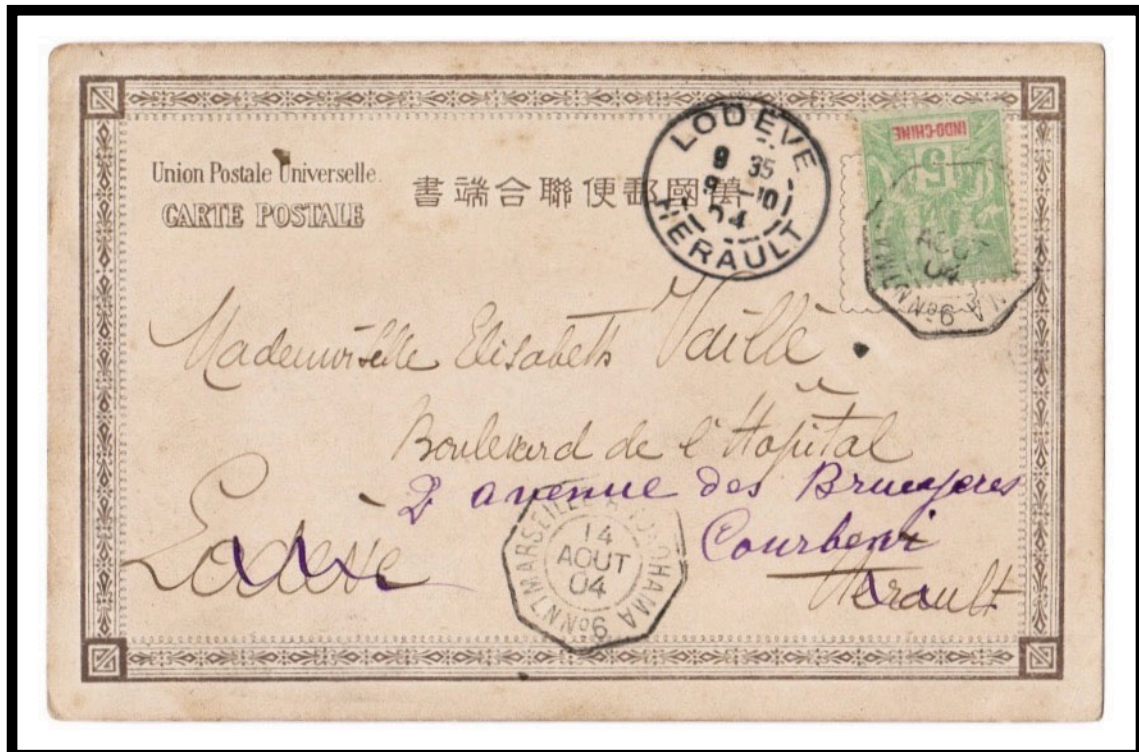 Union Postale Universelle.
CARTE POSTALE
萬國郵便聯合端書
LODEVE
9 35
9 -10
04
HERAULT
INDO-CHINE
5
AOUT
04
LN N No 6
Mademoiselle Elisabeth Vaillé
Boulevard de l'Hopital
2 avenue des Bruyeres
Courbevoi
Lodève
Herault
MARSEILLE A YOKOHAMA
14
AOUT
04
LN N No 6